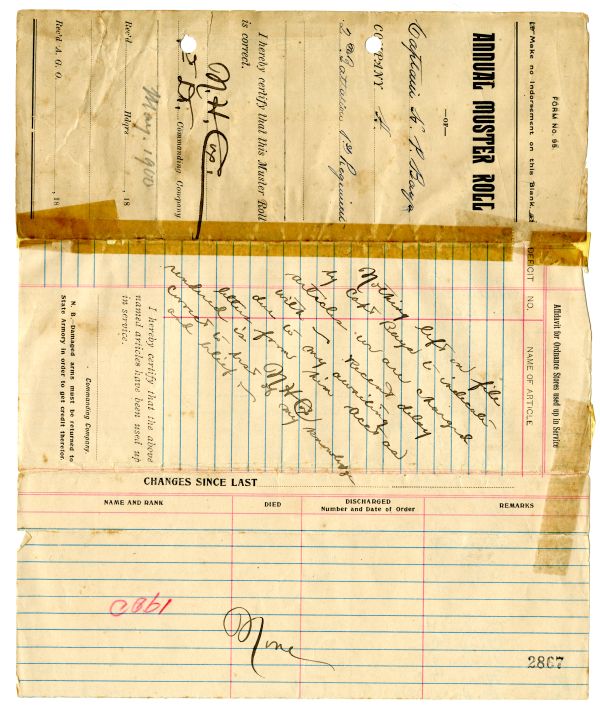 FORM No. 95.
☞ Make no Indorsement on this Blank ☜
ANNUAL MUSTER ROLL
—OF—
Captain H. P. Baya
COMPANY F.
2nd Battalion 1st Regiment
I hereby certify that this Muster Roll
is correct.
N. H. Cox.
1st Lt. Commanding Company
Rec'd Hdqrs , 18
May, 1900
Rec'd A. G. O. , 18
Affidavit for Ordnance Stores used up in Service
DEFICIT NO. NAME OF ARTICLE
Nothing left in file
by Capt Baya to indicate
articles we are charged
with — Recent delay
due to my awaiting
letter from him
rendered is
correct to best of my knowledge
and belief —
N H Cox
I hereby certify that the above
named articles have been used up
in service:
Commanding Company.
N. B.—Damaged arms must be returned to
State Armory in order to get credit therefor.
CHANGES SINCE LAST
NAME AND RANK DIED DISCHARGED REMARKS
Number and Date of Order
1900
None
2867